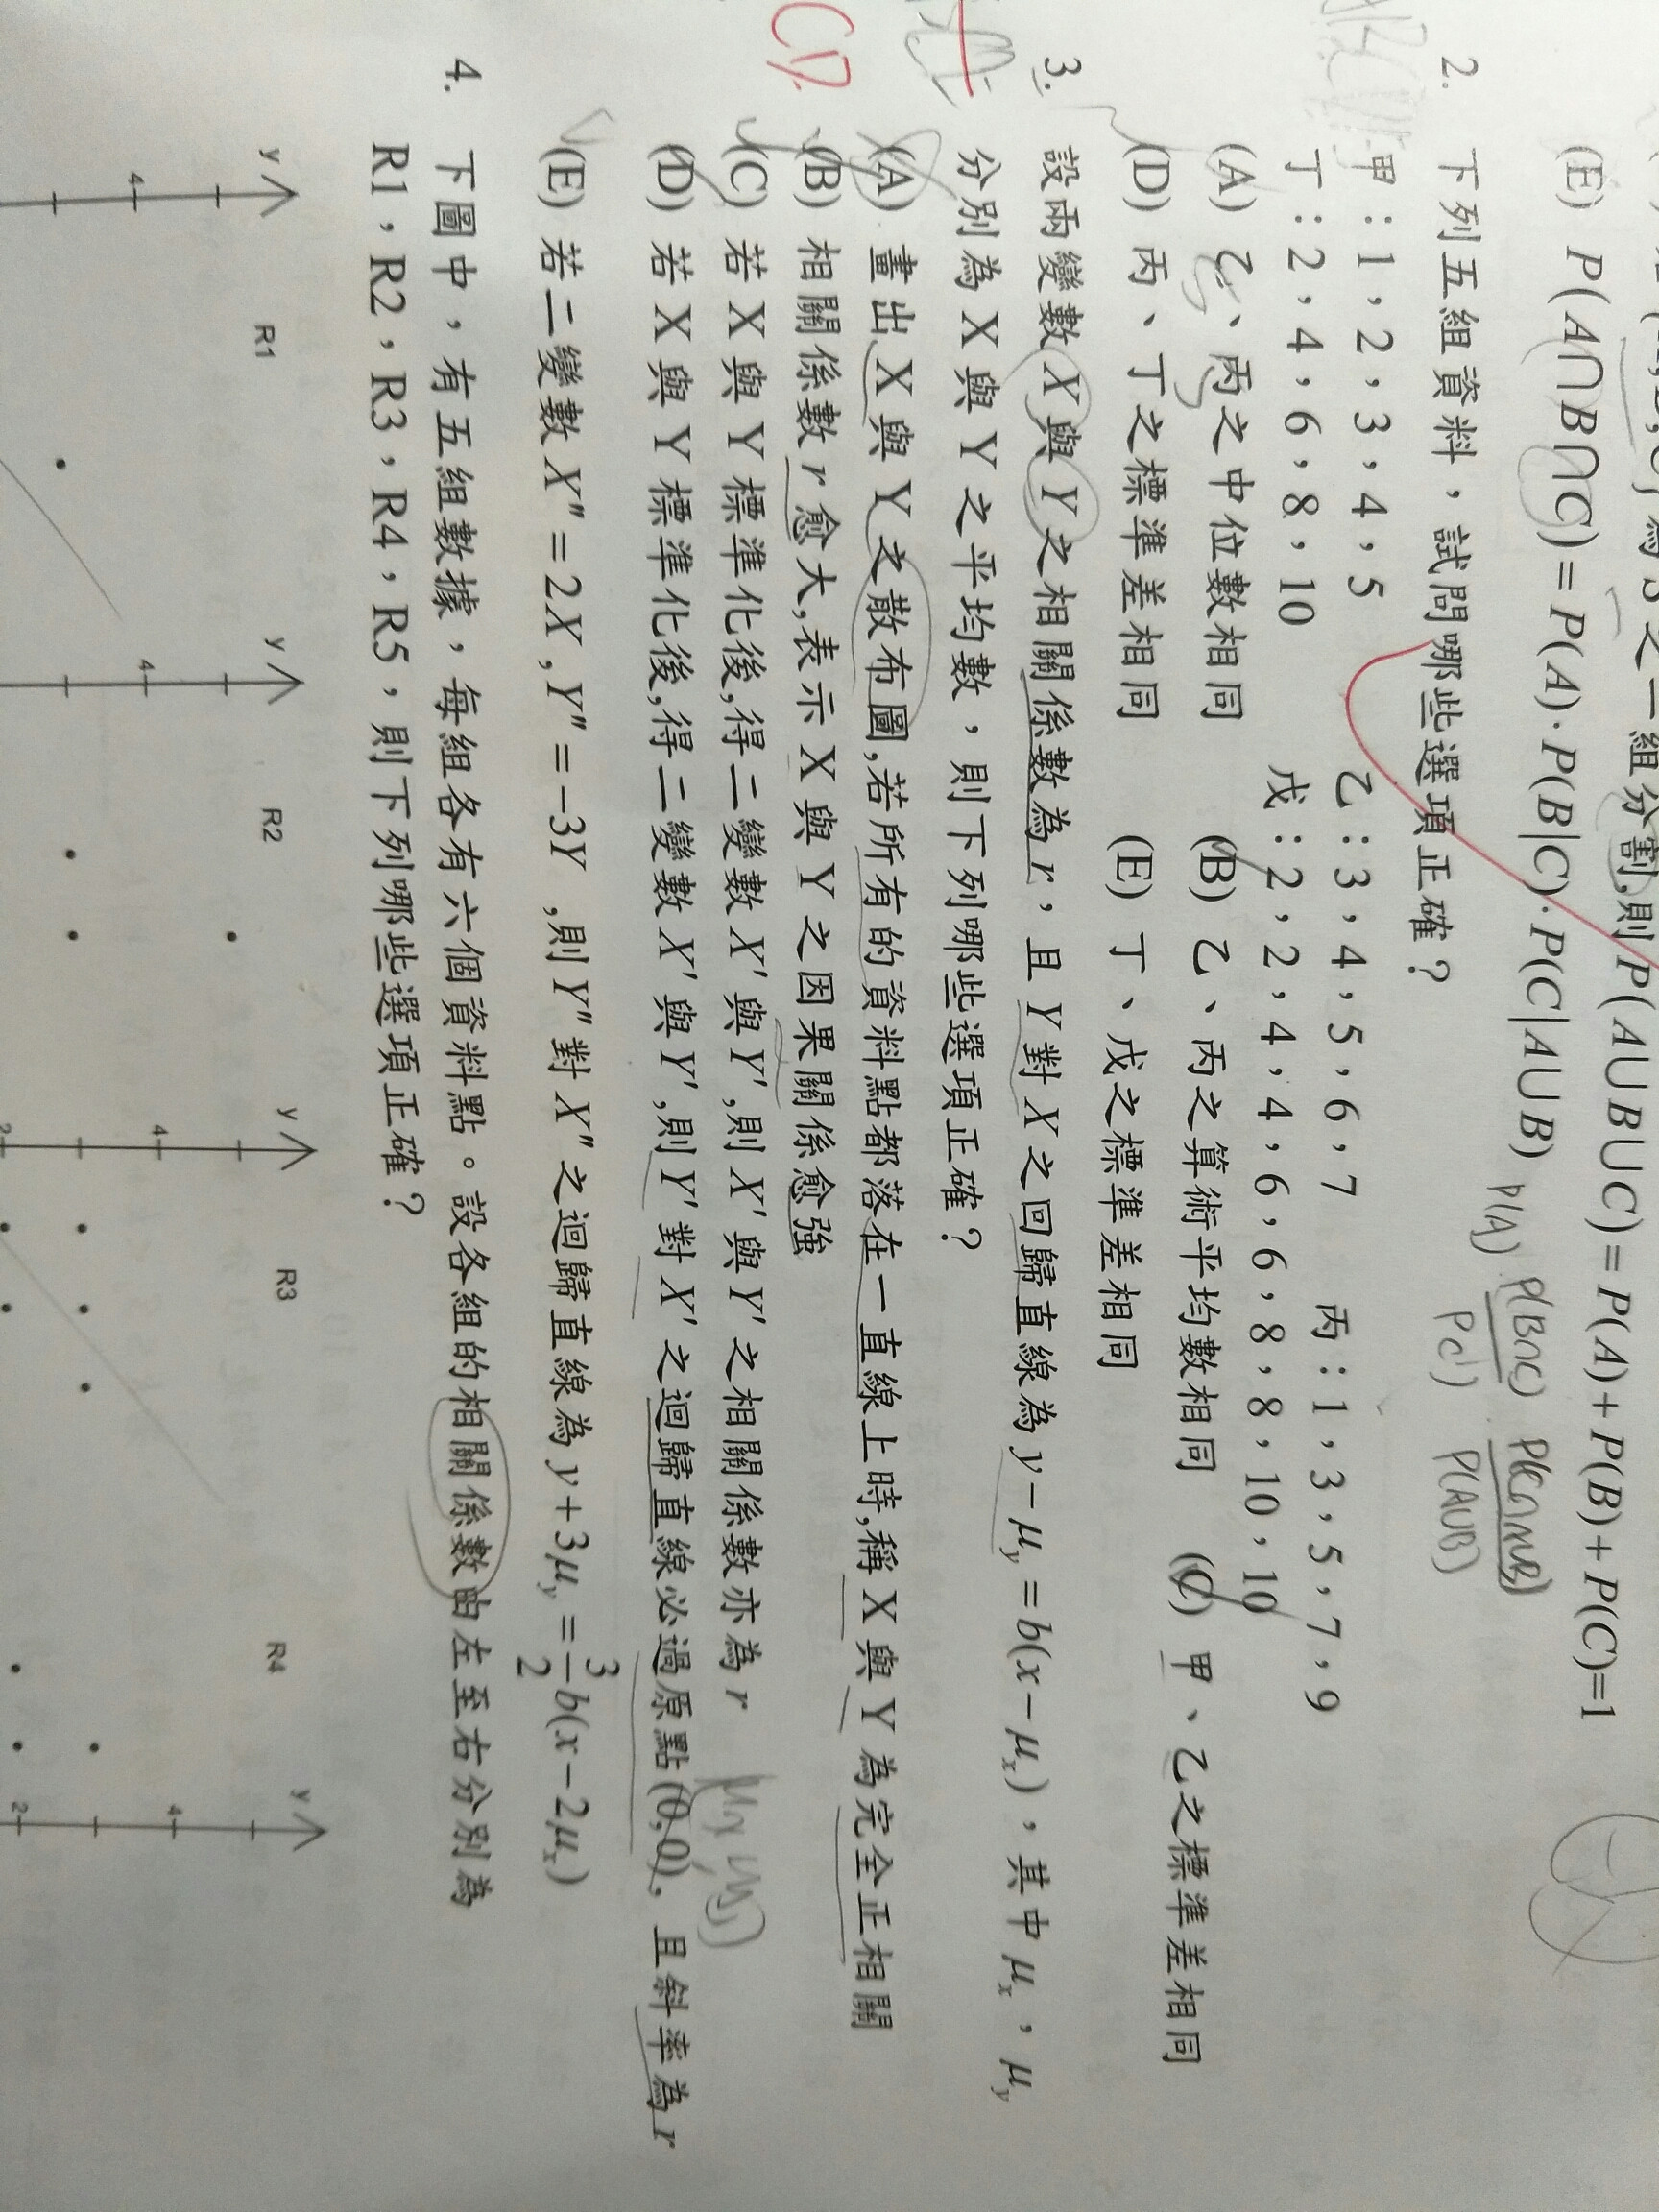 (E) P(A∩B∩C)=P(A)·P(B|C)·P(C|A∪B)
P(A) P(B∩C)
P(C) P(A∪B)
2. 下列五組資料，試問哪些選項正確？
甲：1，2，3，4，5 乙：3，4，5，6，7 丙：1，3，5，7，9
丁：2，4，6，8，10 戊：2，2，4，4，6，6，8，8，10，10
(A) 乙、丙之中位數相同 (B) 乙、丙之算術平均數相同 (C) 甲、乙之標準差相同
(D) 丙、丁之標準差相同 (E) 丁、戊之標準差相同
3. 設兩變數X與Y之相關係數為r，且Y對X之回歸直線為y−μy=b(x−μx)，其中μx，μy
分別為X與Y之平均數，則下列哪些選項正確？
(A) 畫出X與Y之散布圖,若所有的資料點都落在一直線上時,稱X與Y為完全正相關
CD
(B) 相關係數r愈大,表示X與Y之因果關係愈強
(C) 若X與Y標準化後,得二變數X′與Y′,則X′與Y′之相關係數亦為r
(μx, μy)
(D) 若X與Y標準化後,得二變數X′與Y′,則Y′對X′之迴歸直線必過原點(0,0)，且斜率為r
(E) 若二變數X″=2X,Y″=−3Y,則Y″對X″之迴歸直線為y+3μy=3/2b(x−2μx)
4. 下圖中，有五組數據，每組各有六個資料點。設各組的相關係數由左至右分別為
R1，R2，R3，R4，R5，則下列哪些選項正確？
y R1 y R2 y R3 R4 y
4 4 4 4
2 2